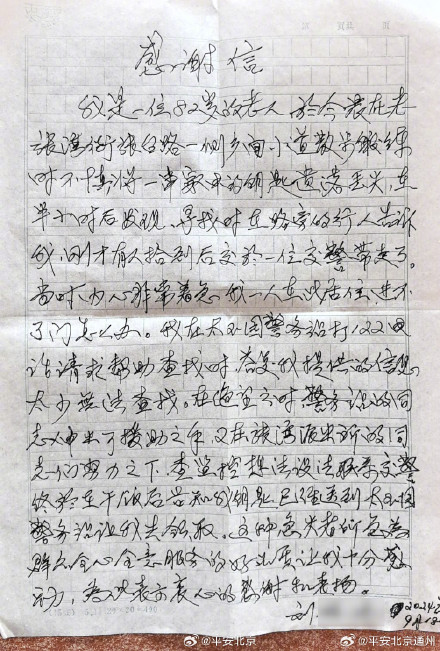 感谢信
我是一位82岁的老人 于今晨在老
张湾街张台路一侧乡间小道散步锻练
时不慎将一串家用的钥匙遗落丢失,在
半小时后发现,寻找时在路旁的行人告诉
我,刚才有人拾到后交於一位交警带走了。
当时内心非常着急 我一人在此居住,进不
了门怎么办。我在大外园警务站打122电
话请求帮助查找时,答复我提供的信息
太少无法查找。在绝望之时,警务站的同
志伸出了援助之手,又在张湾派出所的同
志们努力之下,查监控想法设法联系交警
终於午饭后告知我钥匙已经送到
警务站让我去领取。这种急失者所急为
群众全心全意服务的好态度让我十分感
动,为此表示衷心的感谢和表扬。
刘
2024年
9月18日
@平安北京
@平安北京通州